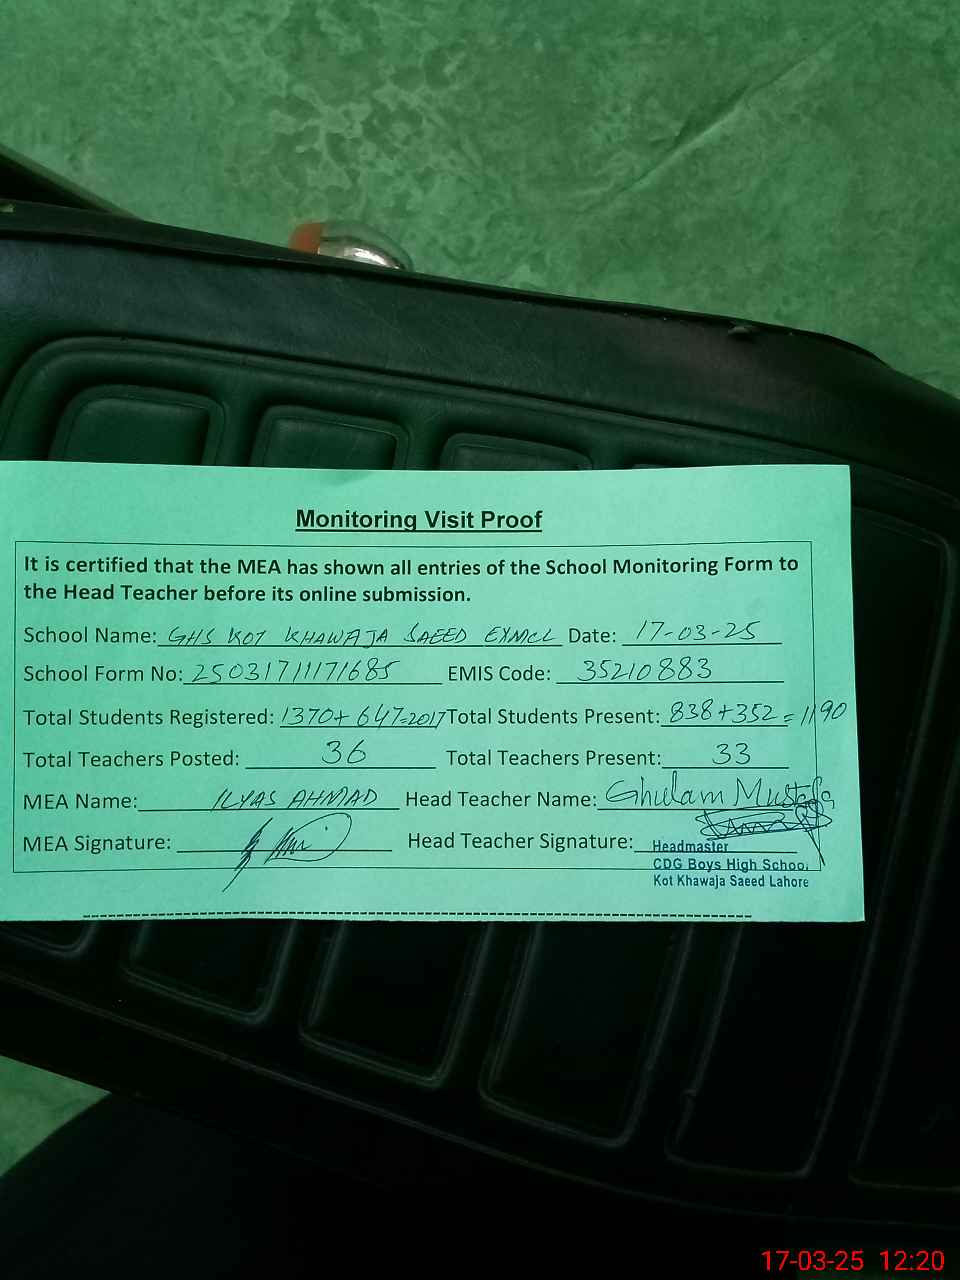 Monitoring Visit Proof
It is certified that the MEA has shown all entries of the School Monitoring Form to
the Head Teacher before its online submission.
School Name: GHS KOT KHAWAJA SAEED EXMCL Date: 17-03-25
School Form No: 25031711171685 EMIS Code: 35210883
Total Students Registered: 1370+ 647=2017 Total Students Present: 838+352 = 1190
Total Teachers Posted: 36 Total Teachers Present: 33
MEA Name: ILYAS AHMAD Head Teacher Name: Ghulam Mustafa
MEA Signature: Head Teacher Signature:
Headmaster
CDG Boys High School
Kot Khawaja Saeed Lahore
17-03-25 12:20